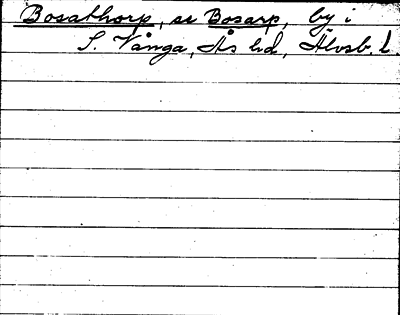 Bosathorp, se Bosarp, by i
S. Vånga, Ås hd, Älvsb. l.